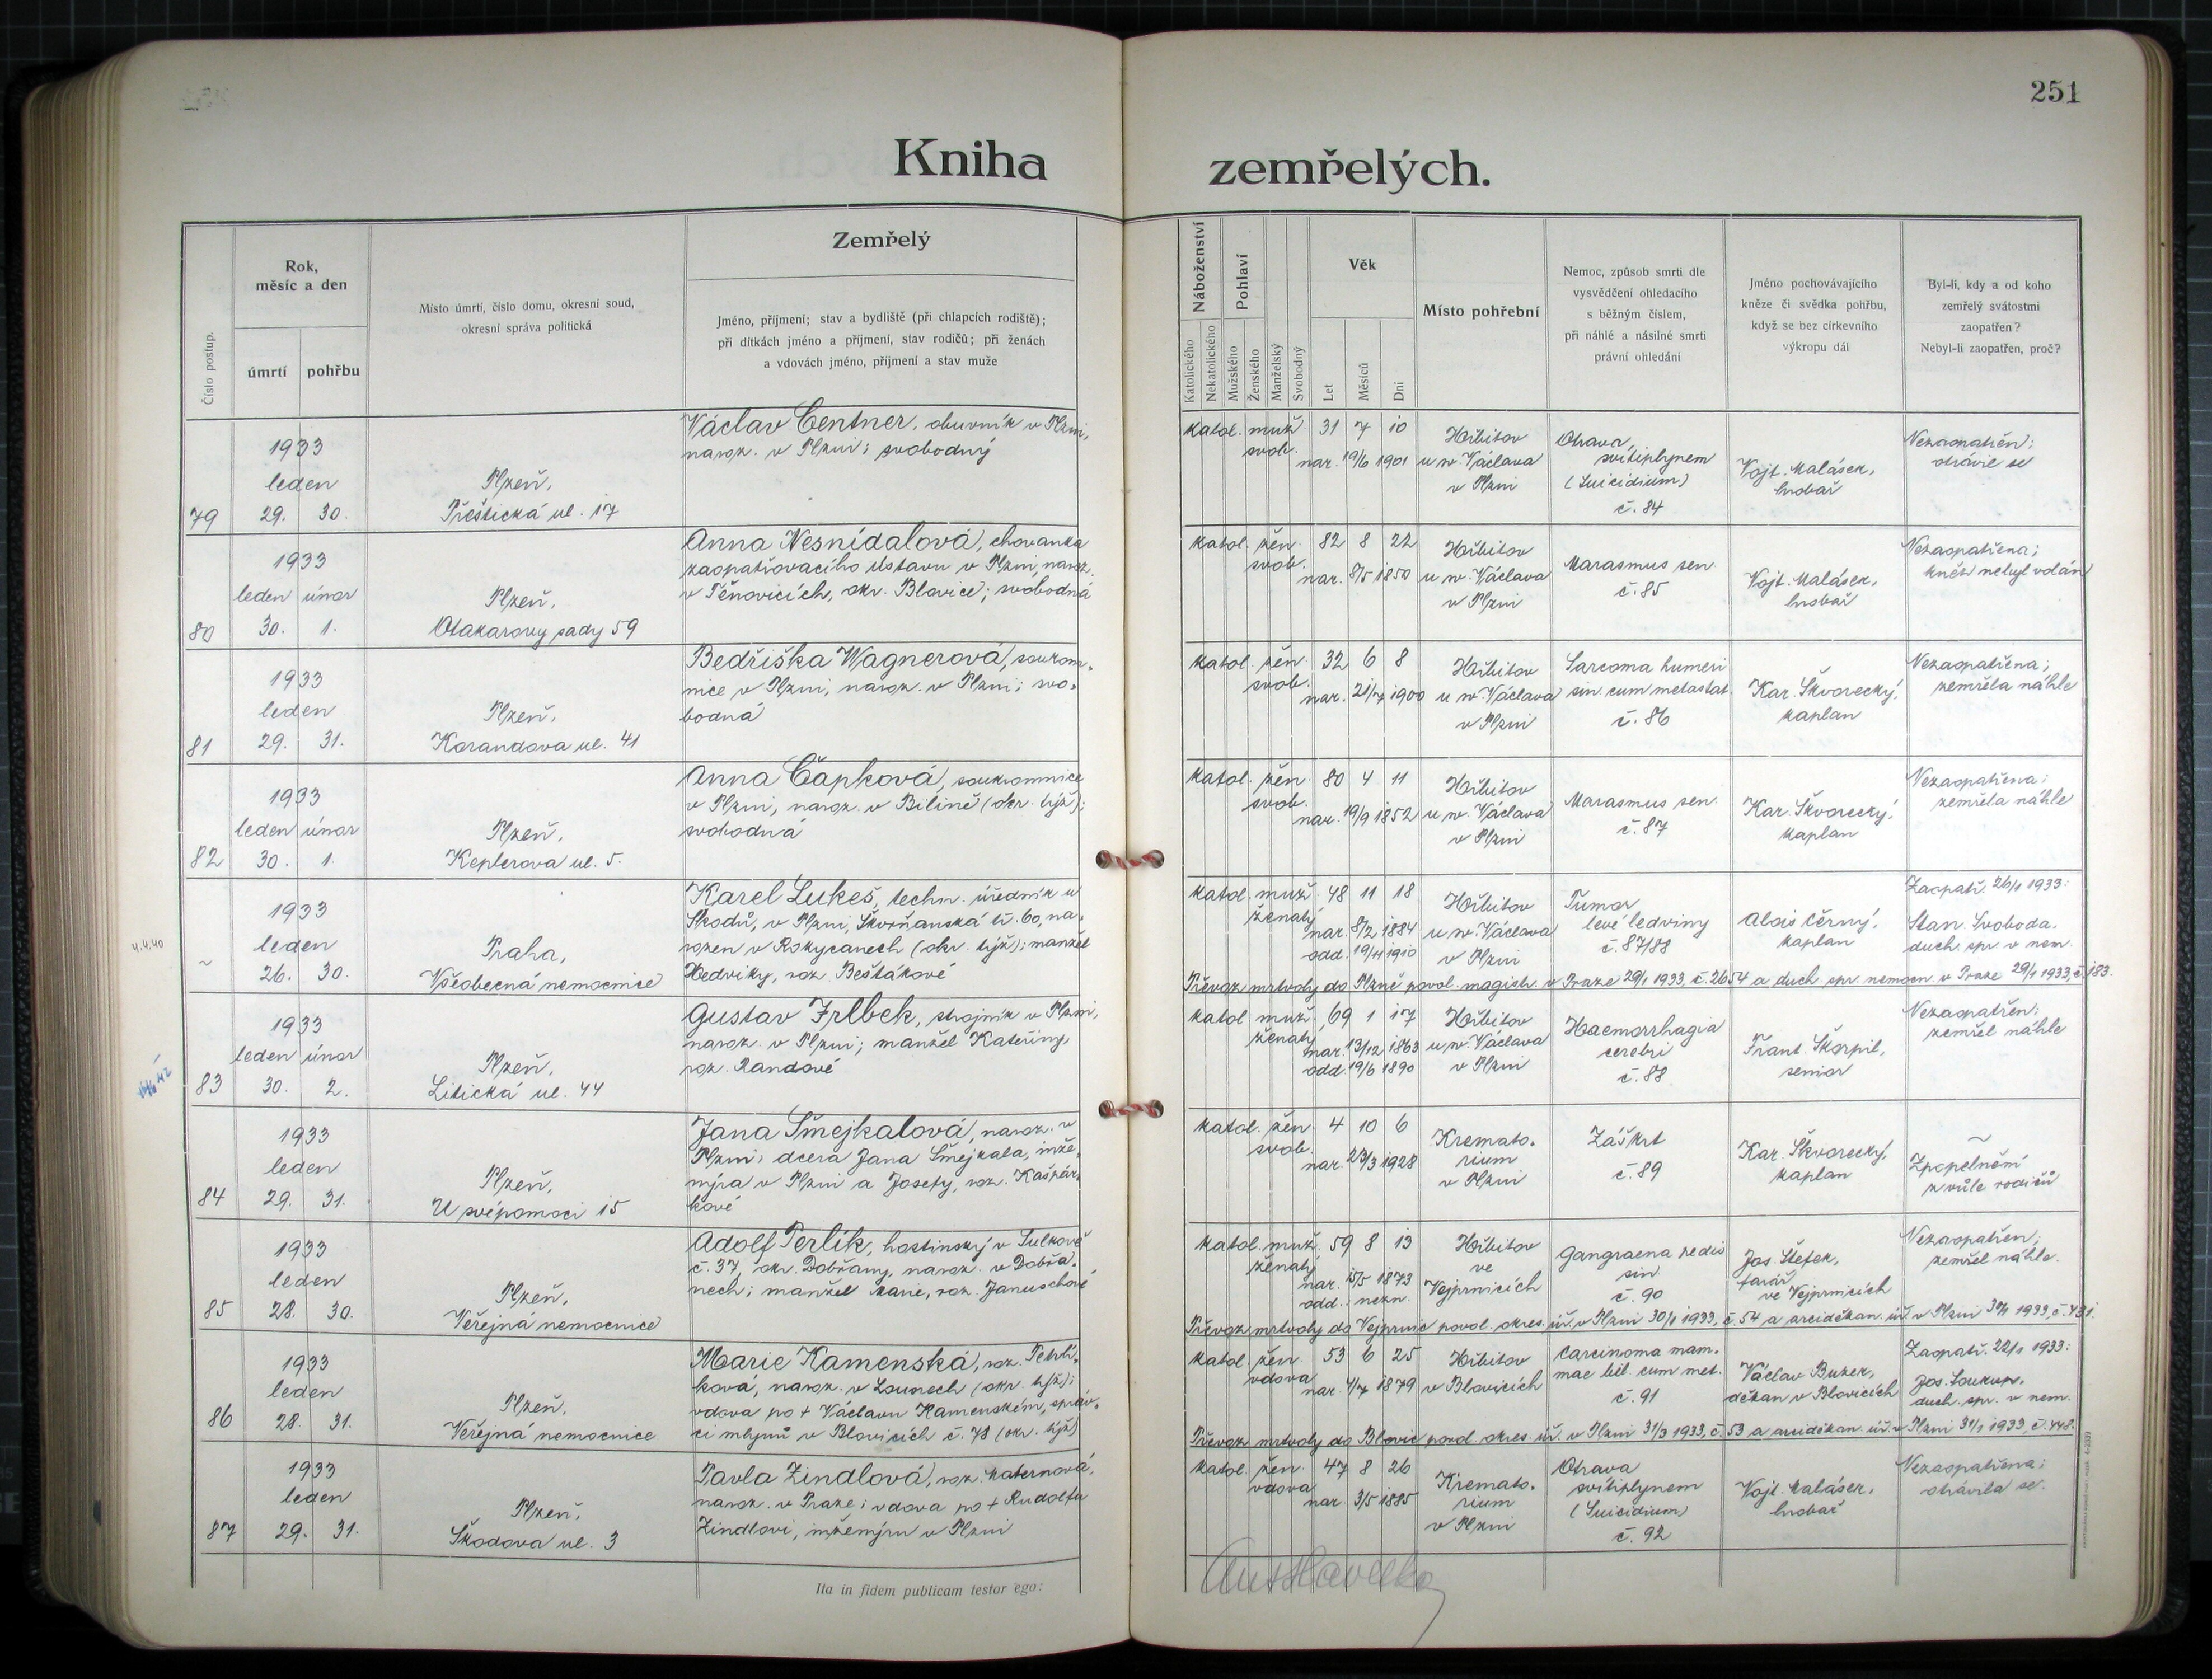 251
Kniha zemřelých.
Číslo postup.
Rok,
měsíc a den
úmrtí
pohřbu
Místo úmrtí, číslo domu, okresní soud,
okresní správa politická
Zemřelý
Jméno, příjmení; stav a bydliště (při chlapcích rodiště);
při dítkách jméno a příjmení, stav rodičů; při ženách
a vdovách jméno, příjmení a stav muže
Náboženství
Katolického
Nekatolického
Pohlaví
Mužského
Ženského
Manželský
Svobodný
Věk
Let
Měsíců
Dní
Místo pohřební
Nemoc, způsob smrti dle
vysvědčení ohledacího
s běžným číslem,
při náhlé a násilné smrti
právní ohledání
Jméno pochovávajícího
kněze či svědka pohřbu,
když se bez církevního
výkropu dál
Byl-li, kdy a od koho
zemřelý svátostmi
zaopatřen?
Nebyl-li zaopatřen, proč?
79
1933
leden
29. 30.
Plzeň,
Přeštická ul. 17
Václav Centner, obuvník v Plzni,
naroz. v Plzni; svobodný
katol. muž. 31 7 10
svob.
nar. 19/6 1901
Hřbitov
u sv. Václava
v Plzni
Otrava
svítiplynem
(Suicidium)
č. 84
Vojt. Malásek,
hrobař
Nezaopatřen;
otrávil se
80
1933
leden únor
30. 1.
Plzeň,
Otakarovy sady 59
Anna Nesnídalová, chovanka
zaopatřovacího ústavu v Plzni, naroz.
v Těnovicích, okr. Blovice; svobodná
katol. žen. 82 8 22
svob.
nar. 8/5 1850
Hřbitov
u sv. Václava
v Plzni
Marasmus sen.
č. 85
Vojt. Malásek,
hrobař
Nezaopatřena;
kněz nebyl volán
81
1933
leden
29. 31.
Plzeň,
Korandova ul. 41
Bedřiška Wagnerová, soukrom-
nice v Plzni, naroz. v Plzni; svo-
bodná
katol. žen. 32 6 8
svob.
nar. 21/7 1900
Hřbitov
u sv. Václava
v Plzni
Sarcoma humeri
sin. cum metastat.
č. 86
Kar. Škvorecký,
kaplan
Nezaopatřena;
zemřela náhle
82
1933
leden únor
30. 1.
Plzeň,
Keplerova ul. 5.
Anna Čapková, soukromnice
v Plzni, naroz. v Bílině (okr. týž);
svobodná
katol. žen. 80 4 11
svob.
nar. 19/9 1852
Hřbitov
u sv. Václava
v Plzni
Marasmus sen.
č. 87
Kar. Škvorecký,
kaplan
Nezaopatřena;
zemřela náhle
4.4.40
~
1933
leden
26. 30.
Praha,
Všeobecná nemocnice
Karel Lukeš, techn. úředník u
Škodů, v Plzni, Škvrňanská tř. 60, na-
rozen v Rokycanech (okr. týž); manžel
Hedviky, roz. Beštákové
katol. muž. 48 11 18
ženatý
nar. 8/2 1884
odd. 19/11 1910
Hřbitov
u sv. Václava
v Plzni
Tumor
levé ledviny
č. 87/88
Alois Černý,
kaplan
Zaopatř. 26/1 1933:
Stan. Svoboda,
duch. spr. v nem.
Převoz mrtvoly do Plzně povol. magistr. v Praze 29/1 1933, č. 2654 a duch. spr. nemocn. v Praze 29/1 1933, č. 183.
83
1933
leden únor
30. 2.
Plzeň,
Litická ul. 44
Gustav Irlbek, strojník v Plzni,
naroz. v Plzni; manžel Kateřiny,
roz. Randové
katol. muž. 69 1 17
ženatý
nar. 13/12 1863
odd. 19/6 1890
Hřbitov
u sv. Václava
v Plzni
Haemorrhagia
cerebri
č. 88
Frant. Škorpil,
senior
Nezaopatřen;
zemřel náhle
84
1933
leden
29. 31.
Plzeň,
U svépomoci 15
Jana Šmejkalová, naroz. v
Plzni, dcera Jana Šmejkala, inže-
nýra v Plzni a Josefy, roz. Kašpár-
kové
katol. žen. 4 10 6
svob.
nar. 23/3 1928
Kremato-
rium
v Plzni
Záškrt
č. 89
Kar. Škvorecký,
kaplan
~
Zpopelnění
z vůle rodičů
85
1933
leden
28. 30.
Plzeň,
Veřejná nemocnice
Adolf Perlík, hostinský v Sulkově
č. 37, okr. Dobřany, naroz. v Dobřa-
nech; manžel Marie, roz. Januschové
katol. muž. 59 8 13
ženatý
nar. 15/5 1873
odd. nezn.
Hřbitov
ve
Vejprnicích
Gangraena pedis
sin.
č. 90
Jos. Štefek,
farář
ve Vejprnicích
Nezaopatřen;
zemřel náhle.
Převoz mrtvoly do Vejprnic povol. okres. úř. v Plzni 30/1 1933, č. 54 a arciděkan. úř. v Plzni 30/1 1933, č. 431.
86
1933
leden
28. 31.
Plzeň,
Veřejná nemocnice
Marie Kamenská, roz. Petrlí-
ková, naroz. v Lounech (okr. týž);
vdova po † Václavu Kamenském, správ-
ci mlýnů v Blovicích č. 78 (okr. týž)
katol. žen. 53 6 25
vdova
nar. 4/7 1879
Hřbitov
v Blovicích
Carcinoma mam-
mae bil. cum met.
č. 91
Václav Buzek,
děkan v Blovicích
Zaopatř. 22/1 1933:
Jos. Soukup,
duch. spr. v nem.
Převoz mrtvoly do Blovic povol. okres. úř. v Plzni 31/3 1933, č. 53 a arciděkan. úř. v Plzni 31/1 1933, č. 448.
87
1933
leden
29. 31.
Plzeň,
Škodova ul. 3
Pavla Zindlová, roz. Maternová,
naroz. v Praze; vdova po † Rudolfu
Zindlovi, inženýru v Plzni
katol. žen. 47 8 26
vdova
nar. 3/5 1885
Kremato-
rium
v Plzni
Otrava
svítiplynem
(Suicidium)
č. 92
Vojt. Malásek,
hrobař
Nezaopatřena;
otrávila se.
Ita in fidem publicam testor ego: